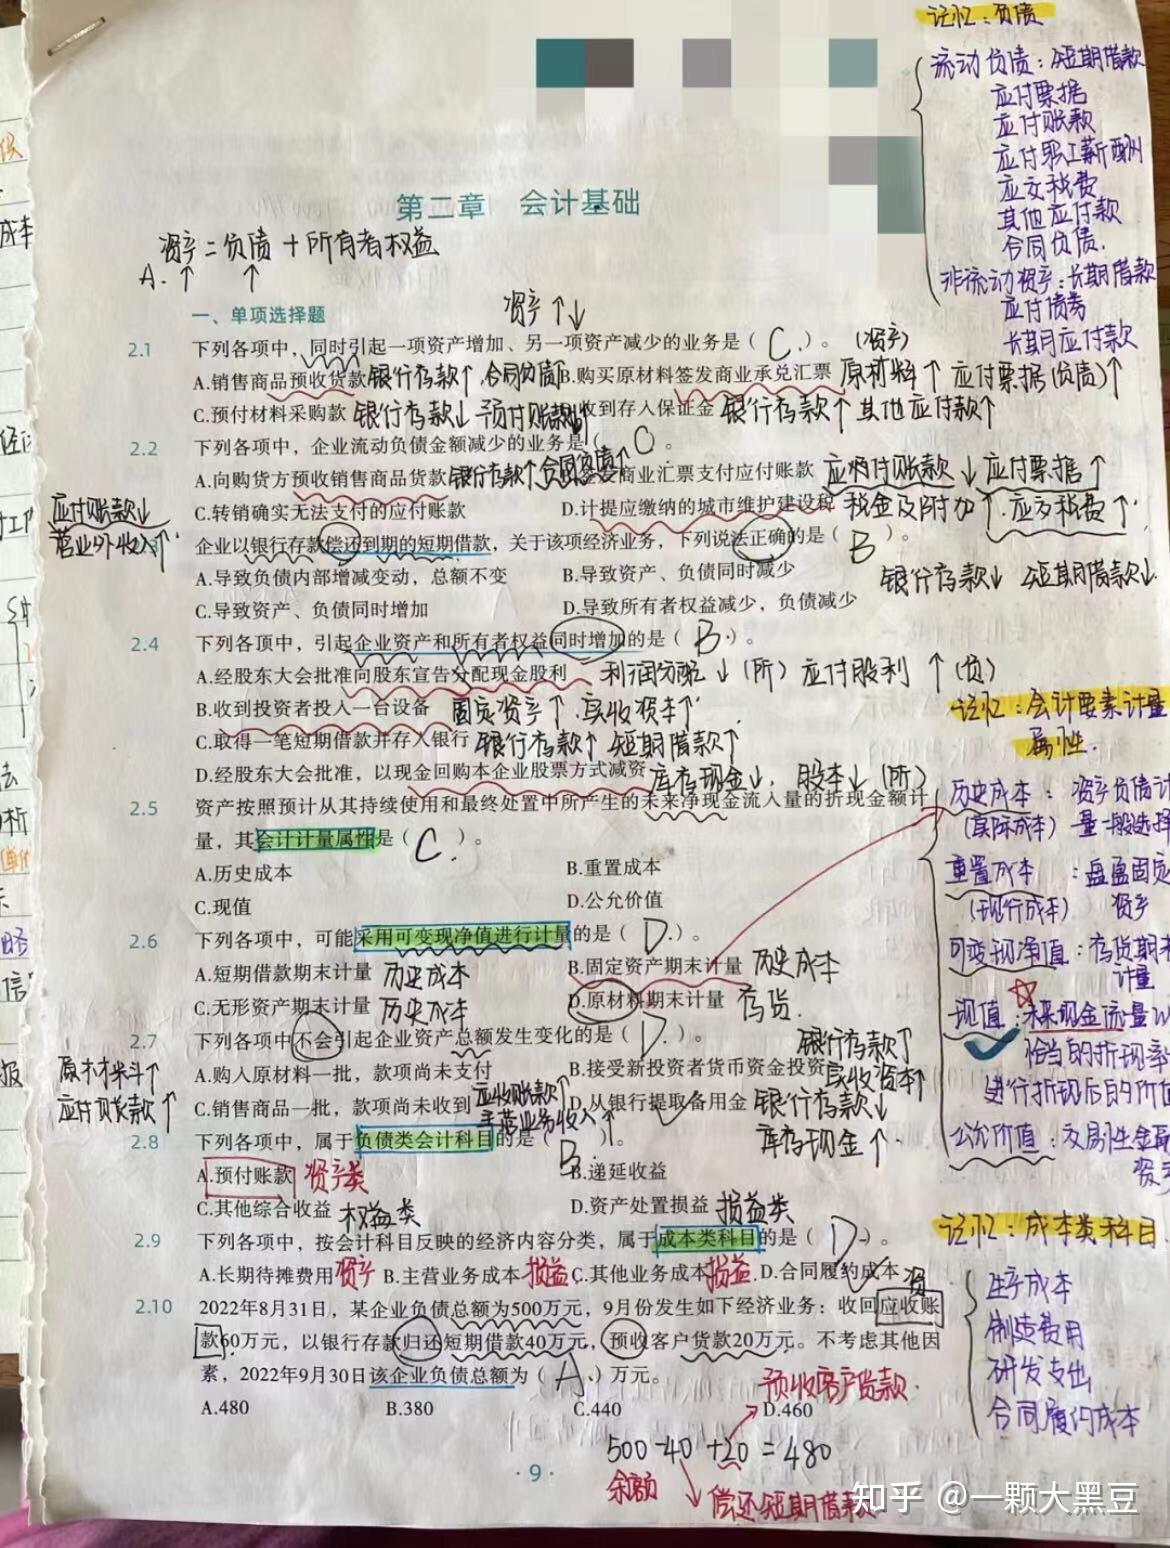 记忆：负债
流动负债：短期借款
应付票据
应付账款
应付职工薪酬
应交税费
其他应付款
合同负债.
非流动资产：长期借款
应付债券
长期应付款
第二章 会计基础
资产=负债+所有者权益
A.↑ ↑
一、单项选择题
资产↑↓
2.1 下列各项中，同时引起一项资产增加、另一项资产减少的业务是（ C. ）。 (资产)
A.销售商品预收货款 银行存款↑.合同负债↑ B.购买原材料签发商业承兑汇票 原材料↑ 应付票据(负债)↑
C.预付材料采购款 银行存款↓ 预付账款↑ 收到存入保证金 银行存款↑ 其他应付款↑
2.2 下列各项中，企业流动负债金额减少的业务是（ C 。
A.向购货方预收销售商品货款 银行存款↑合同负债↑ 发商业汇票支付应付账款 应付账款↓ 应付票据↑
C.转销确实无法支付的应付账款 D.计提应缴纳的城市维护建设税 税金及附加↑.应交税费↑.
应付账款↓
营业外收入↑
企业以银行存款偿还到期的短期借款，关于该项经济业务，下列说法正确的是（ B ）。
A.导致负债内部增减变动，总额不变 B.导致资产、负债同时减少 银行存款↓ 短期借款↓.
C.导致资产、负债同时增加 D.导致所有者权益减少，负债减少
2.4 下列各项中，引起企业资产和所有者权益同时增加的是（ B. ）。
A.经股东大会批准向股东宣告分配现金股利 利润分配↓(所) 应付股利↑(负)
B.收到投资者投入一台设备 固定资产↑.实收资本↑.
C.取得一笔短期借款并存入银行 银行存款↑ 短期借款↑
D.经股东大会批准，以现金回购本企业股票方式减资 库存现金↓. 股本↓(所)
2.5 资产按照预计从其持续使用和最终处置中所产生的未来净现金流入量的折现金额计
量，其会计计量属性是（ C. ）。
A.历史成本 B.重置成本
C.现值 D.公允价值
2.6 下列各项中，可能采用可变现净值进行计量的是（ D. ）。
A.短期借款期末计量 历史成本 B.固定资产期末计量 历史成本
C.无形资产期末计量 历史成本 D.原材料期末计量 存货.
2.7 下列各项中不会引起企业资产总额发生变化的是（ D. ）。
原材料↑
应付账款↑
A.购入原材料一批，款项尚未支付 B.接受新投资者货币资金投资 银行存款↑
实收资本↑
C.销售商品一批，款项尚未收到 应收账款↑ D.从银行提取备用金 银行存款↓
主营业务收入↑ 库存现金↑.
2.8 下列各项中，属于负债类会计科目的是（ B. ）。
A.预付账款 资产类 B.递延收益
C.其他综合收益 权益类 D.资产处置损益 损益类
2.9 下列各项中，按会计科目反映的经济内容分类，属于成本类科目的是（ D. ）。
A.长期待摊费用 资产 B.主营业务成本 损益 C.其他业务成本 损益. D.合同履约成本
2.10 2022年8月31日，某企业负债总额为500万元，9月份发生如下经济业务：收回应收账
款60万元，以银行存款归还短期借款40万元，预收客户货款20万元。不考虑其他因
素，2022年9月30日该企业负债总额为（ A. ）万元。
预收客户货款.
A.480 B.380 C.440 D.460
500-40+20=480
余额 偿还短期借款
·9·
记忆：会计要素计量
属性.
历史成本： 资产负债计
(实际成本) 量一般选择
重置成本：盘盈固定
(现行成本) 资产
可变现净值：存货期末
计量
现值：未来现金流量以
恰当的折现率
进行折现后的价值
公允价值：
记忆：成本类科目.
生产成本
制造费用
研发支出
合同履约成本
知乎 @一颗大黑豆